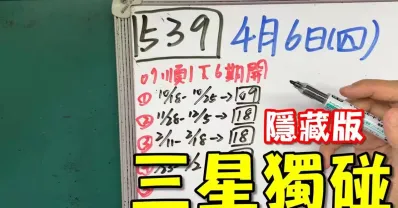 539 4月6日(四)
09順1下6期開
① 10/18- 10/25→ 09
② 11/28- 12/5→ 18
③ 2/11- 2/18→ 18
隱藏版
三星獨碰